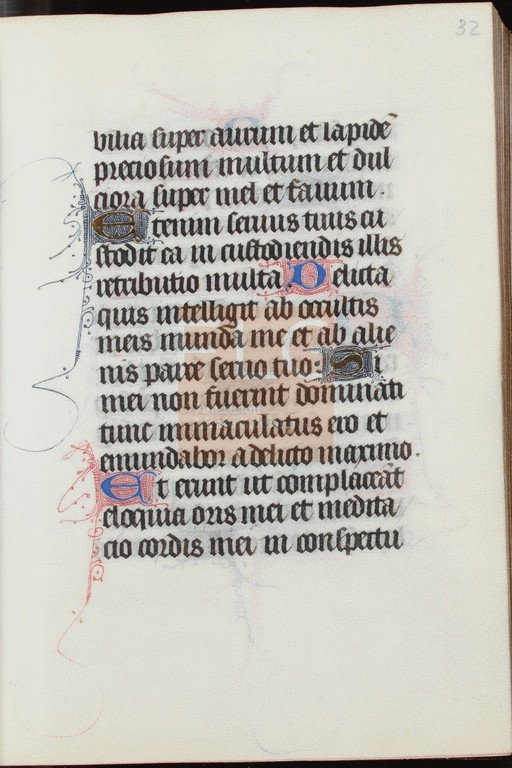 32
bilia super aurum et lapidē
preciosum multum et dul
ciora super mel et fauum.
Etenim seruus tuus cu
stodit ea in custodiendis illis
retributio multa. Delicta
quis intelligit ab occultis
meis munda me et ab alie
nis parce seruo tuo: Si
mei non fuerint dominati
tunc immaculatus ero et
emundabor a delicto maximo.
Et erunt ut complaceāt
eloquia oris mei et medita
cio cordis mei in conspectu